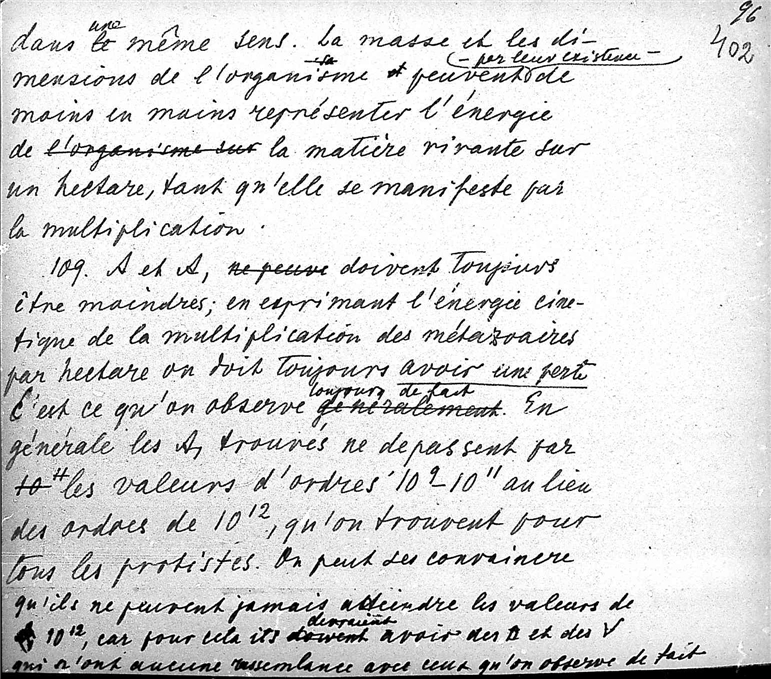 96
402
dans une le même sens. La masse et les di-
- par leur existence -
mensions de l'organisme peuvent de
moins en moins représenter l'énergie
de l'organisme sur la matière vivante sur
un hectare, tant qu'elle se manifeste par
la multiplication.
109. A et A, ne peuve doivent toujours
être moindres; en exprimant l'énergie ciné-
tique de la multiplication des métazoaires
par hectare on doit toujours avoir une perte
toujours de fait
C'est ce qu'on observe généralement. En
générale les A, trouvés ne depassent par
les valeurs d'ordres 10⁹-10¹¹ au lieu
des ordres de 10¹², qu'on trouvent pour
tous les protistes. On peut ses convaincre
qu'ils ne peuvent jamais atteindre les valeurs de
devraient
10¹², car pour cela ils doivent avoir des Δ et des V
qui n'ont aucune ressemlance avec ceux qu'on observe de fait